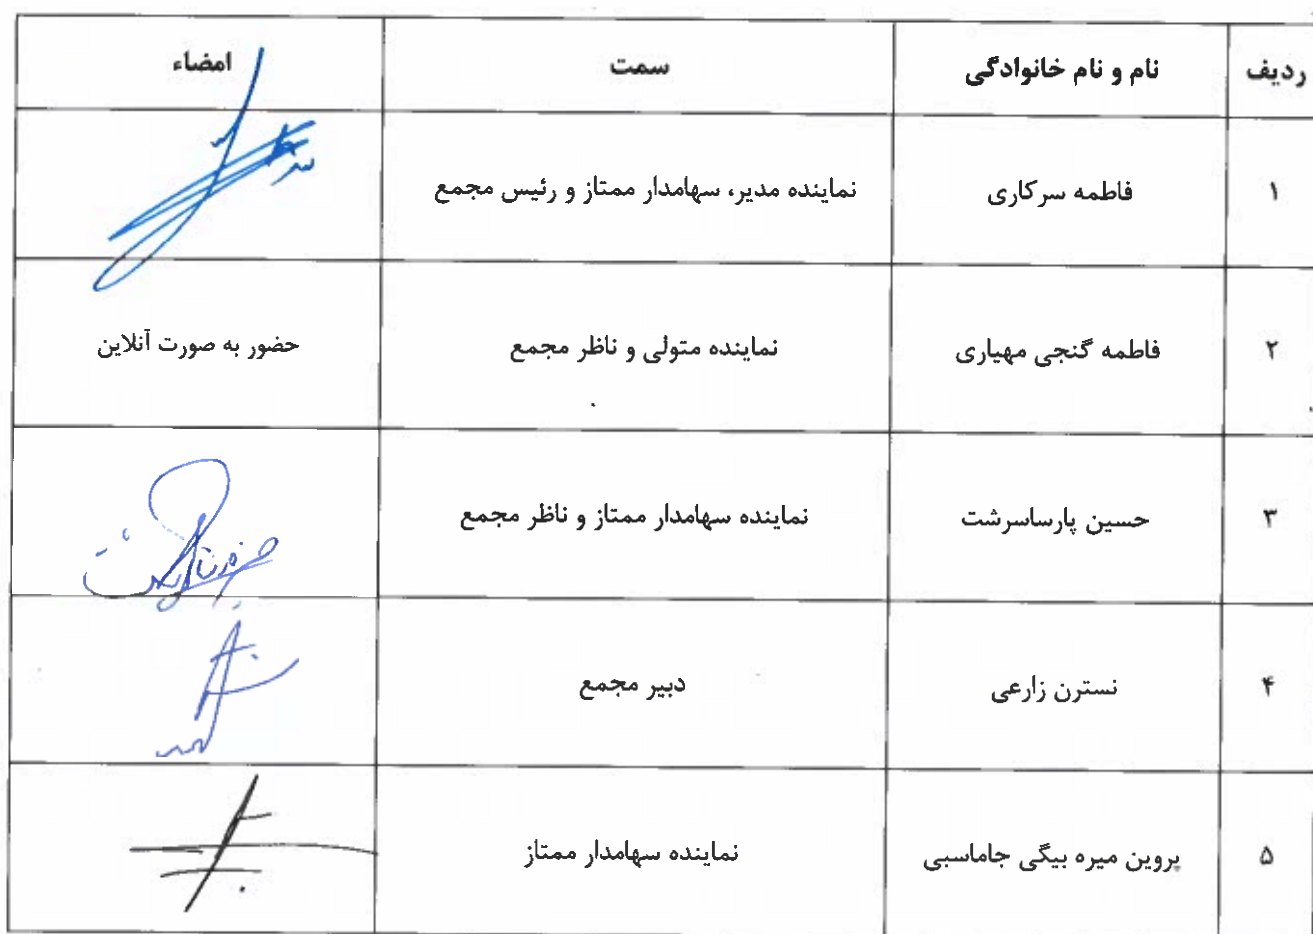 ردیف نام و نام خانوادگی سمت امضاء
۱ فاطمه سرکاری نماینده مدیر، سهامدار ممتاز و رئیس مجمع
۲ فاطمه گنجی مهیاری نماینده متولی و ناظر مجمع حضور به صورت آنلاین
۳ حسین پارساسرشت نماینده سهامدار ممتاز و ناظر مجمع
۴ نسترن زارعی دبیر مجمع
۵ پروین میره بیگی جاماسبی نماینده سهامدار ممتاز